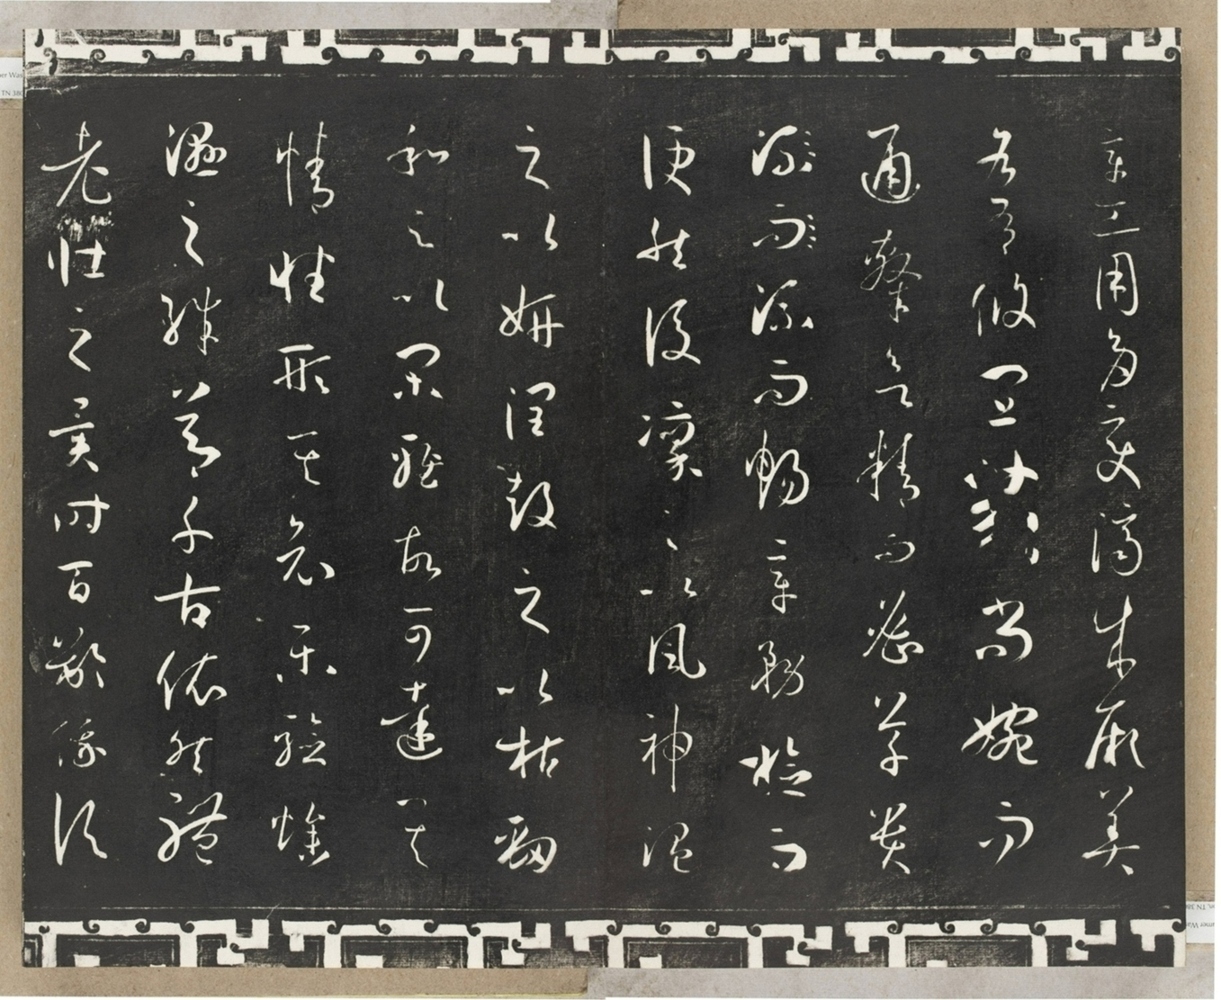 章工用多變濟成厥美
各有攸宜篆尚婉而
通隸欲精而密草貴
流而流而暢章務檢而
便然後凜之以風神溫
之以妍潤鼓之以枯勁
和之以閑雅故可達其
情性形其哀樂驗燥
濕之殊節千古依然體
老壯之異時百齡俄頃